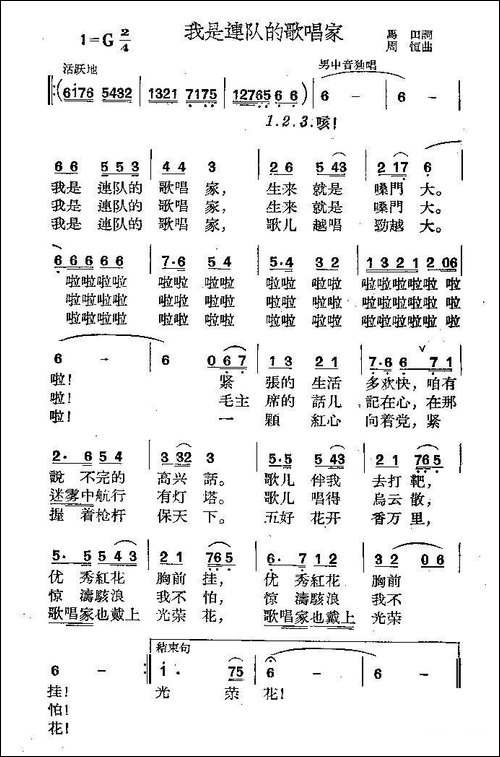 我是連队的歌唱家
1=G 2/4
馬田詞
周恒曲
活跃地
男中音独唱
(6176 5432 1321 7175 12765 6 6) 6 - 6 -
1.2.3.咳!
6 6 5 5 3 4 4 3 2 6 5 43 2 17 6
我是 連队的 歌唱 家, 生来 就是 嗓門 大。
我是 連队的 歌唱 家, 生来 就是 嗓門 大。
我是 連队的 歌唱 家, 歌儿 越唱 勁越 大。
6 6 6 6 6 7·6 5 4 5·4 3 2 1 3 2 1 2 06
啦啦啦啦 啦啦 啦啦 啦啦 啦啦 啦啦啦啦 啦
啦啦啦啦 啦啦 啦啦 啦啦 啦啦 啦啦啦啦 啦
啦啦啦啦 啦啦 啦啦 啦啦 啦啦 啦啦啦啦 啦
6 - 6 0 6 7 1 3 2 1 7·6 6 7 1
啦! 紧 張的 生活 多欢快, 咱有
啦! 毛主 席的 話儿 記在心, 在那
啦! 一 顆 紅心 向着党, 紧
2· 6 5 4 3 32 3 5·5 5 43 2 1 76 5
說 不完的 高兴 話。 歌儿 伴我 去打 靶,
迷雾中航行 有灯 塔。 歌儿 唱得 烏云 散,
握 着枪杆 保天 下。 五好 花开 香万 里,
5· 5 5 5 4 3 2 1 76 5 6· 7 6 5 4 3 2 0 6
优 秀紅花 胸前 挂, 优 秀紅花 胸前
惊 濤駭浪 我不 怕, 惊 濤駭浪 我不
歌唱家也戴上 光荣 花, 歌唱家也戴上 光荣
結束句
6 - 1· 75 6 - 6 -
挂! 光 荣 花!
怕!
花!